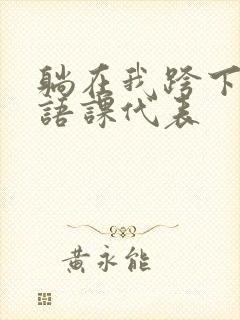 躺在我跨下
語課代表
黃永能